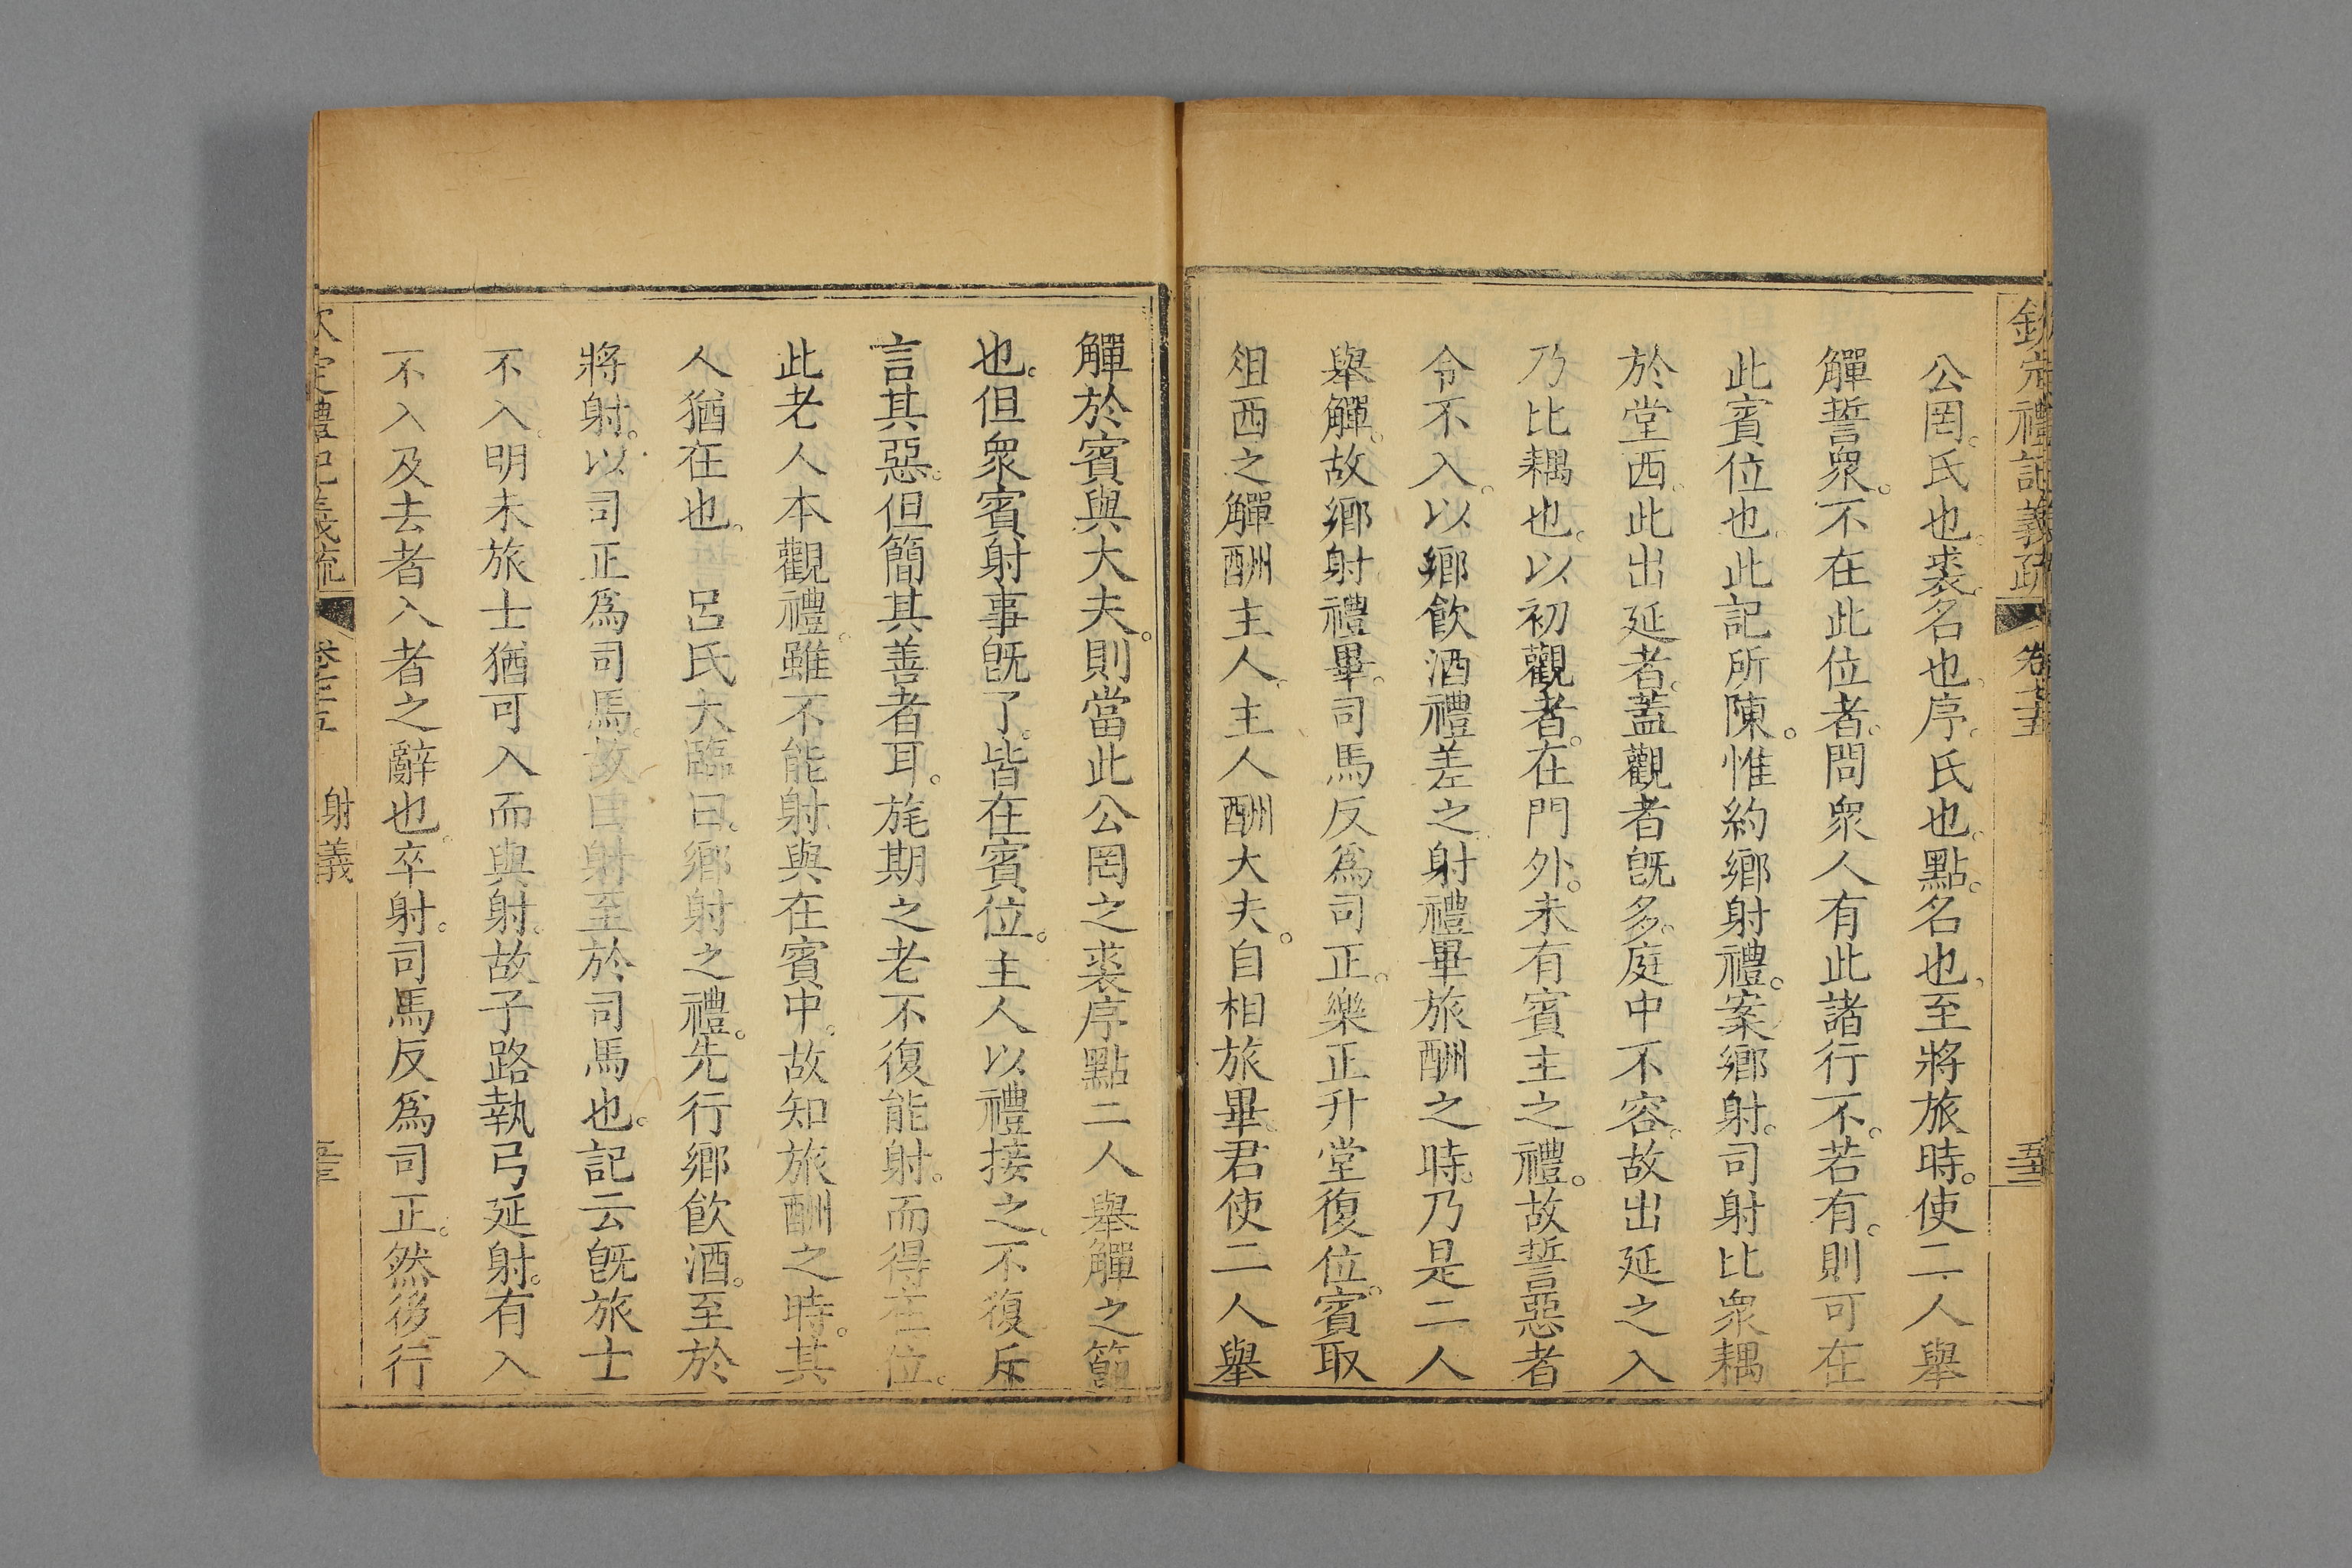 欽定禮記義疏 卷七十五 至
公罔。氏也。裘。名也。序。氏也。點。名也。至將旅時。使二人舉
觶誓衆。不在此位者。問衆人有此諸行不。若有。則可在
此賓位也。此記所陳。惟約鄉射禮。案鄉射。司射比衆耦
於堂西。此出延者。蓋觀者旣多。庭中不容。故出延之入
乃比耦也。以初觀者。在門外。未有賓主之禮。故誓惡者
令不入。以鄉飲酒禮差之。射禮畢旅酬之時。乃是二人
舉觶。故鄉射禮畢。司馬反爲司正。樂正升堂復位。賓取
俎西之觶酬主人。主人酬大夫。自相旅畢。君使二人舉
觶於賓與大夫。則當此公罔之裘序點二人舉觶之節
也。但衆賓射事旣了。皆在賓位。主人以禮接之。不復斥
言其惡。但簡其善者耳。旄期之老不復能射。而得在位。
此老人本觀禮。雖不能射。與在賓中。故知旅酬之時。其
人猶在也。 呂氏大臨曰。鄉射之禮。先行鄉飲酒。至於
將射。以司正爲司馬。故曰射至於司馬也。記云旣旅士
不入。明未旅士猶可入而與射。故子路執弓延射。有入
不入及去者入者之辭也。卒射。司馬反爲司正。然後行
欽定禮記義疏 卷七十五 射義